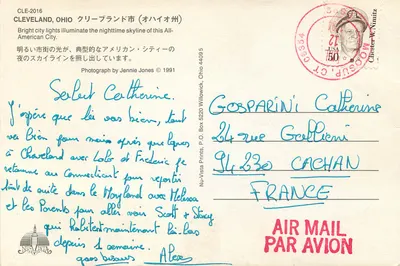 CLE-2016
CLEVELAND, OHIO クリーブランド市 (オハイオ州)
Bright city lights illuminate the nighttime skyline of this All-
American City.
明るい街市の光が、典型的なアメリカン・シティーの
夜のスカイラインを照し出しています。
Photography by Jannie Jones © 1991
Salut Catherine.
J'espère que tu vas bien, tout
va bien pour moi après que
à Cleveland avec Lolo et Frédéric je
retourne au Connecticut pour repartir
tout de suite dans le Maryland avec Melissa
et les Parents pour aller voir Scott & Stacy
qui habitent maintenant là-bas
depuis 1 semaine.
gros bisous Alex
Nu-Vista Prints, P.O. Box 5220 Willowick, Ohio 44295
MOOSUP, CT 06354
USA
50
Chester W. Nimitz
GOSPARINI Catherine
24 rue Gallieni
94230 CACHAN
FRANCE
AIR MAIL
PAR AVION